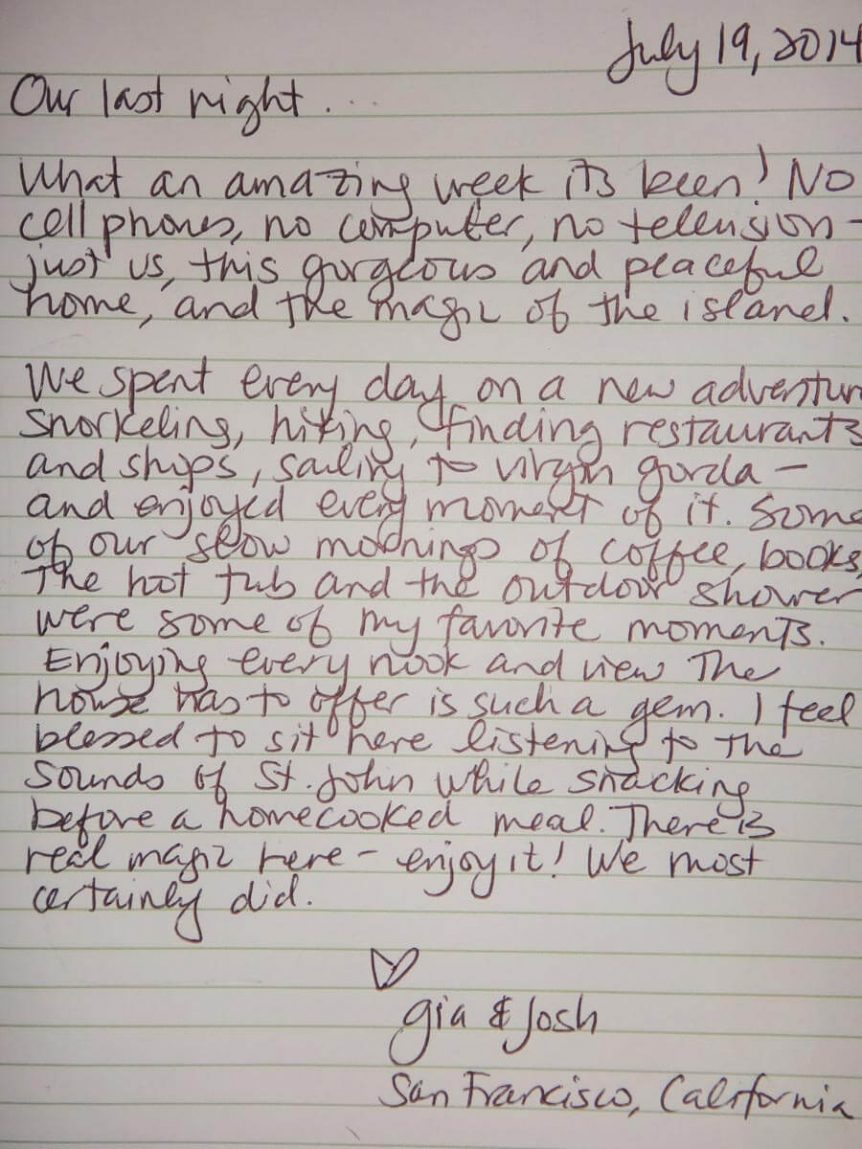 July 19, 2014
Our last night...
What an amazing week its been! No
cell phones, no computer, no television-
just us, this gorgeous and peaceful
home, and the magic of the island.
We spent every day on a new adventur
snorkeling, hiking, finding restaurants
and shops, sailing to virgin gorda -
and enjoyed every moment of it. Some
of our slow mornings of coffee, books,
the hot tub and the outdoor shower
were some of my favorite moments.
Enjoying every nook and view the
house has to offer is such a gem. I feel
blessed to sit here listening to the
sounds of St. John while snacking
before a homecooked meal. There is
real magic here - enjoy it! We most
certainly did.
gia & Josh
San Francisco, California